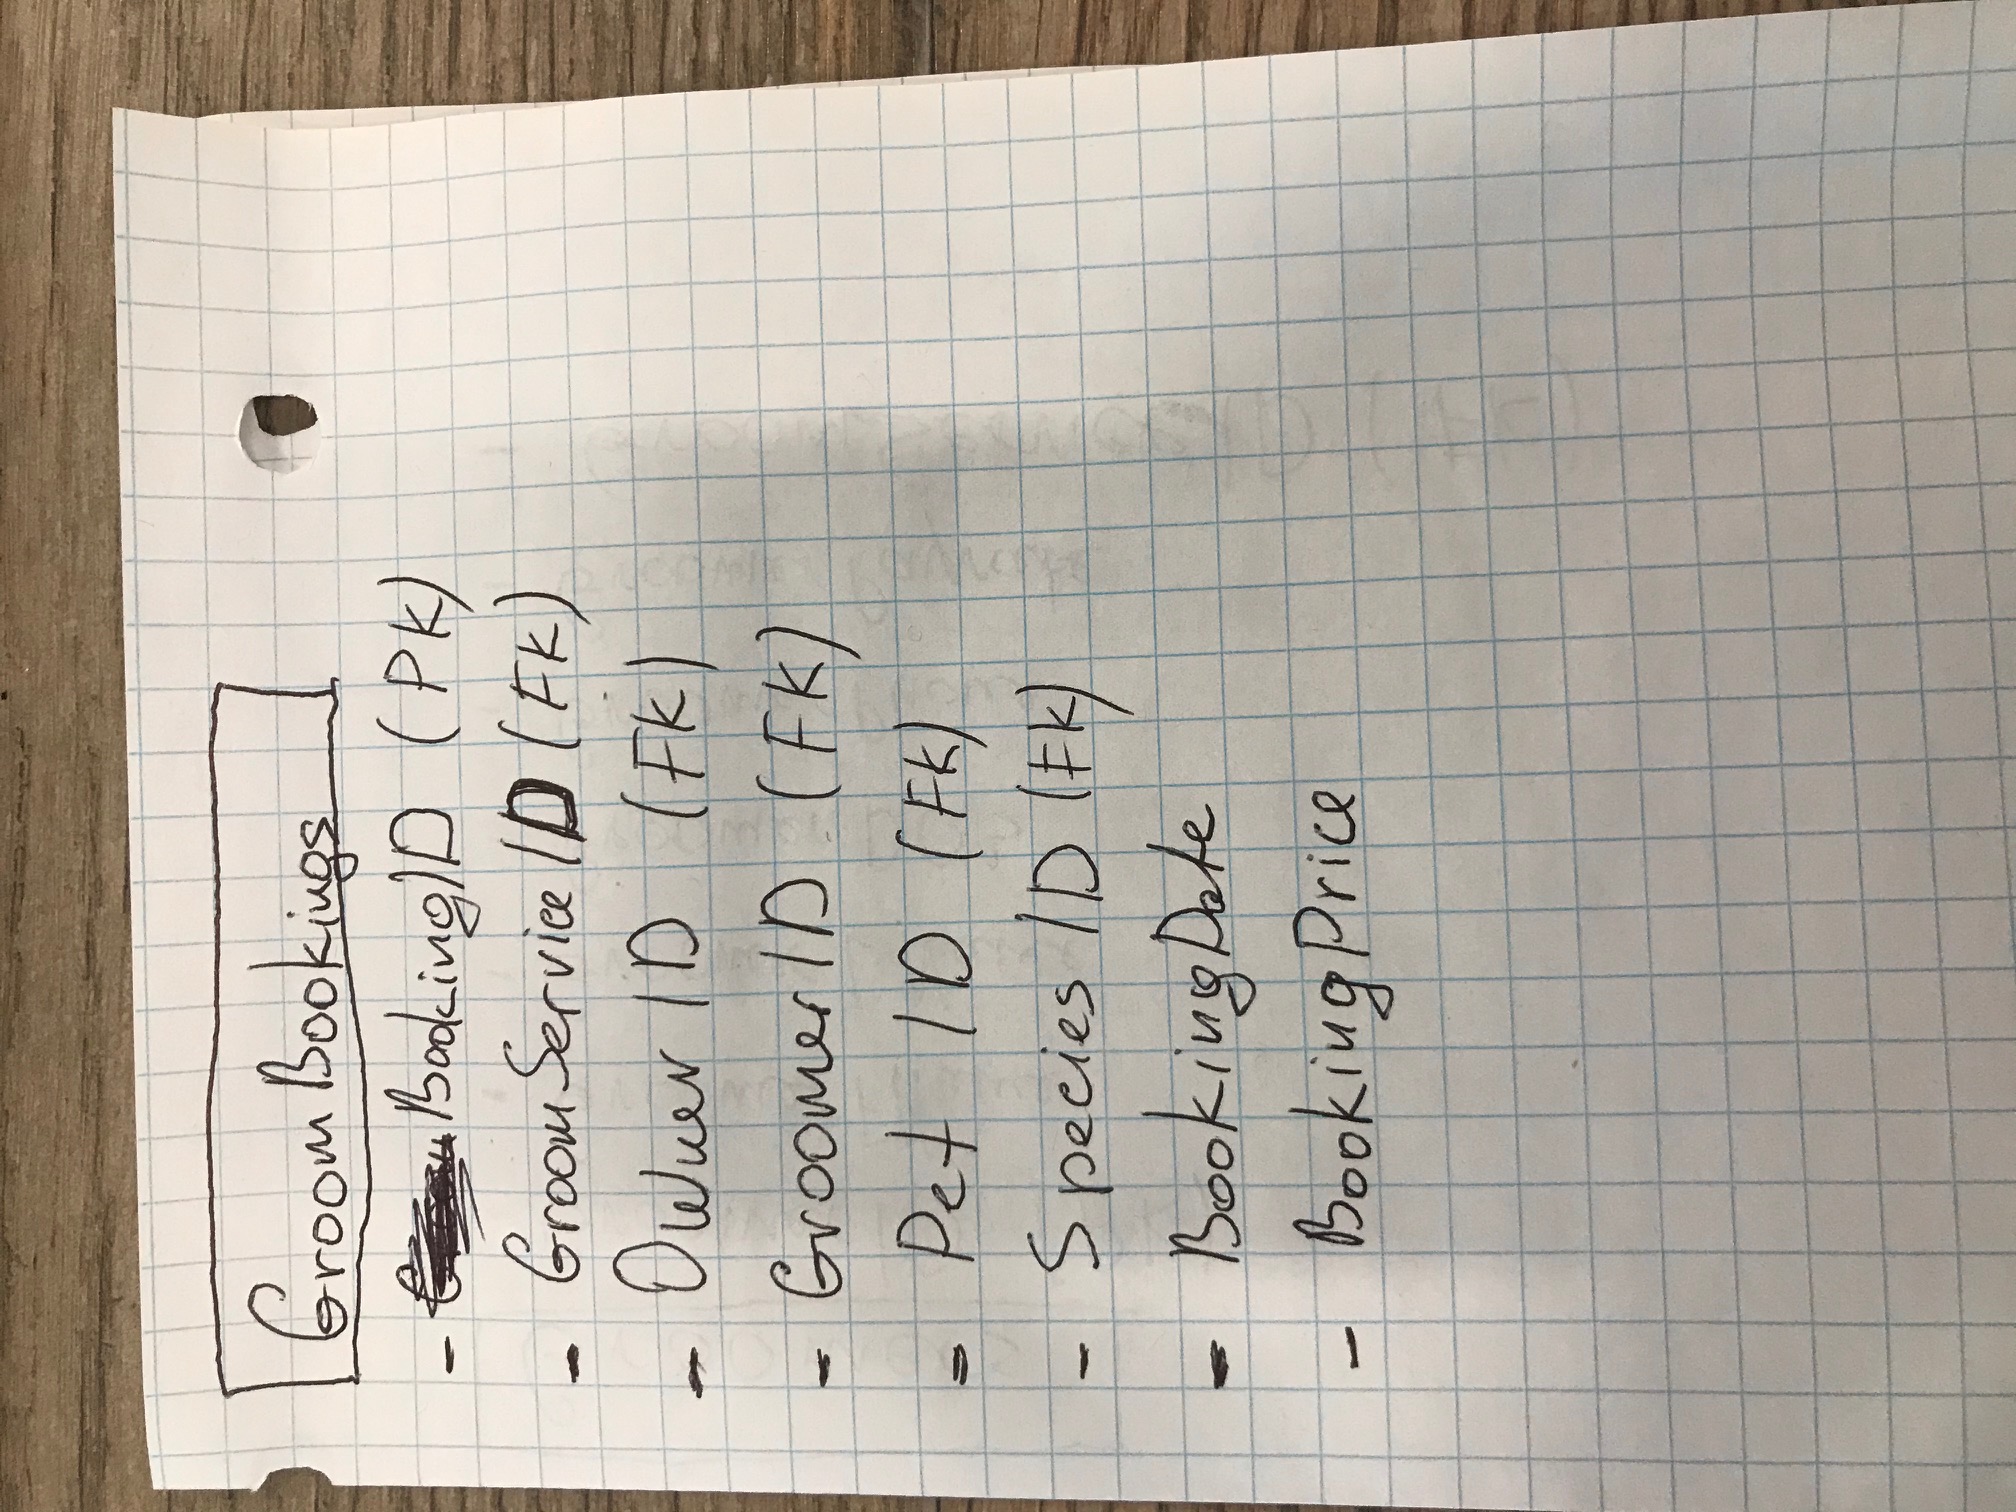 GroomBookings
- BookingID (PK)
- GroomServiceID (FK)
- OwnerID (FK)
- GroomerID (FK)
- Pet ID (FK)
- Species ID (FK)
- BookingDate
- BookingPrice